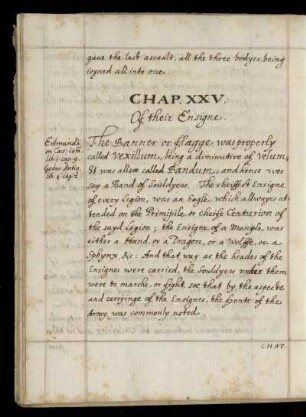 gaue the last assault, all the three bodyes, being
ioyned all into one.
CHAP. XXV.
Of their Ensigne.
Edmunds
on Cæs: Com
lib: 1: cap: 9.
Godw: Antiq
The Banner or flagge, was properly
called Vexillum, being a diminutive of Velum;
It was allso called Bandum, and hence wee
say a Band of Souldyers. The cheiffest Ensigne
of every Legion, was an Eagle, which allwayes at-
tended on the Primipile, or cheife Centurion of
the sayd Legion; the Ensigne, of a Maniple, was
either a Hand, or a Dragon, or a Wolffe, or a
Sphynx &c: And that way as the heades of the
Ensignes were carried, the Souldyers under them
were to marche, or fight, soe that by the aspecte
and carryinge of the Ensignes, the fronts of the
Army was commonly noted.
CHAP.